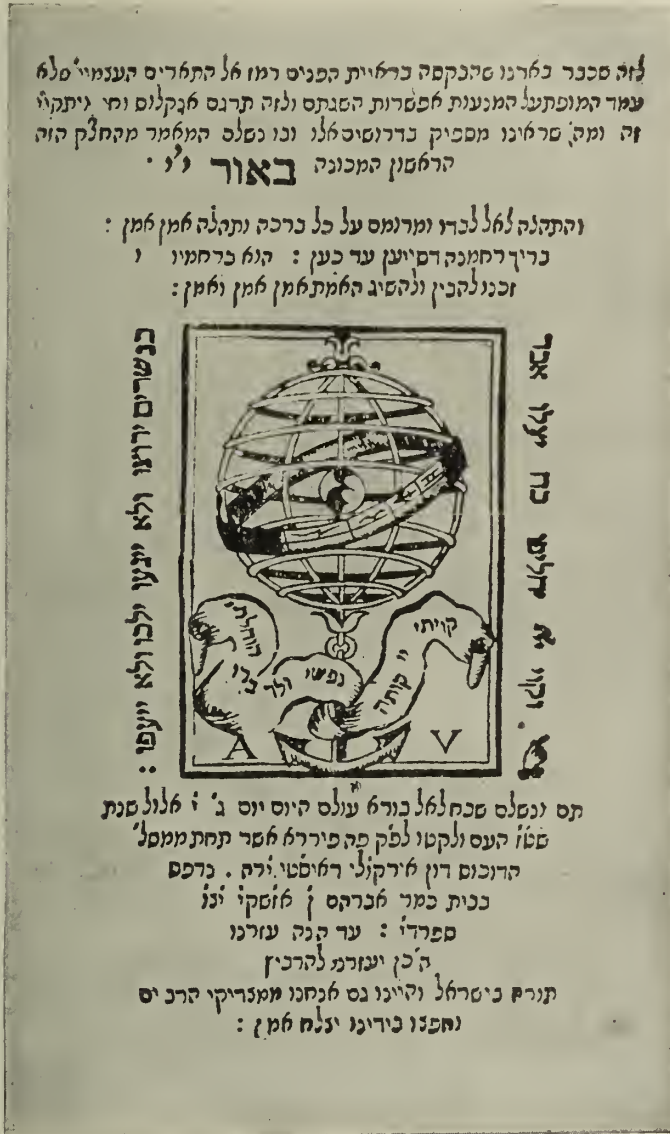 לזה שכבר בארנו שהבקשה בראיית הפנים רמז אל התארים העצמיי' שלא
עמד המופת על המנעות אפשרות השגתם ולזה תרגם אנקלוס וחי ויתקיי'
זה ומה שראינו מספיק בדרושים אלו ובו נשלם המאמר מהחלק הזה
הראשון המכונה באור י"י
והתהלה לאל לבדו ומרומם על כל ברכה ותהלה אמן אמן :
בריך רחמנה דסייען עד כען : הוא ברחמיו
יזכנו להבין ולהשיג האמת אמן אמן ואמן :
וקווי יי' יחליפו כח יעלו אבר
כנשרים ירוצו ולא ייגעו ילכו ולא ייעפו :
קויתי
יי קותה
נפשי
ולדברו
הוחלתי
A V
תם ונשלם שבח לאל בורא עולם היום יום ג' אלול שנת
העם ולקטו לפק פה פיררא אשר תחת ממשל'
הדוכוס דון אירקולי דאיסטי . נדפס
בבית כמר אברהם ן' אושקי
ספרדי : עד הנה עזרנו
ה' כן יעזרנו להרביץ
תורה בישראל והיינו גם אנחנו ממצדיקי הרבים
וחפצו בידינו יצלח אמן :